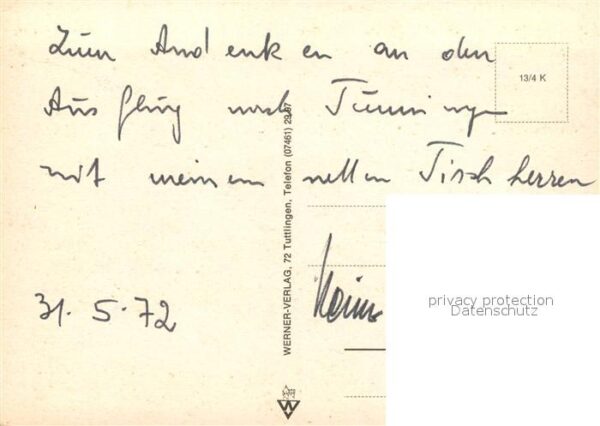 Zum Andenken an den
Ausflug nach Tuningen
mit meinem netten Tischherren
31.5.72
Heinz
13/4 K
WERNER-VERLAG, 72 Tuttlingen, Telefon (07461) 28 87
privacy protection
Datenschutz